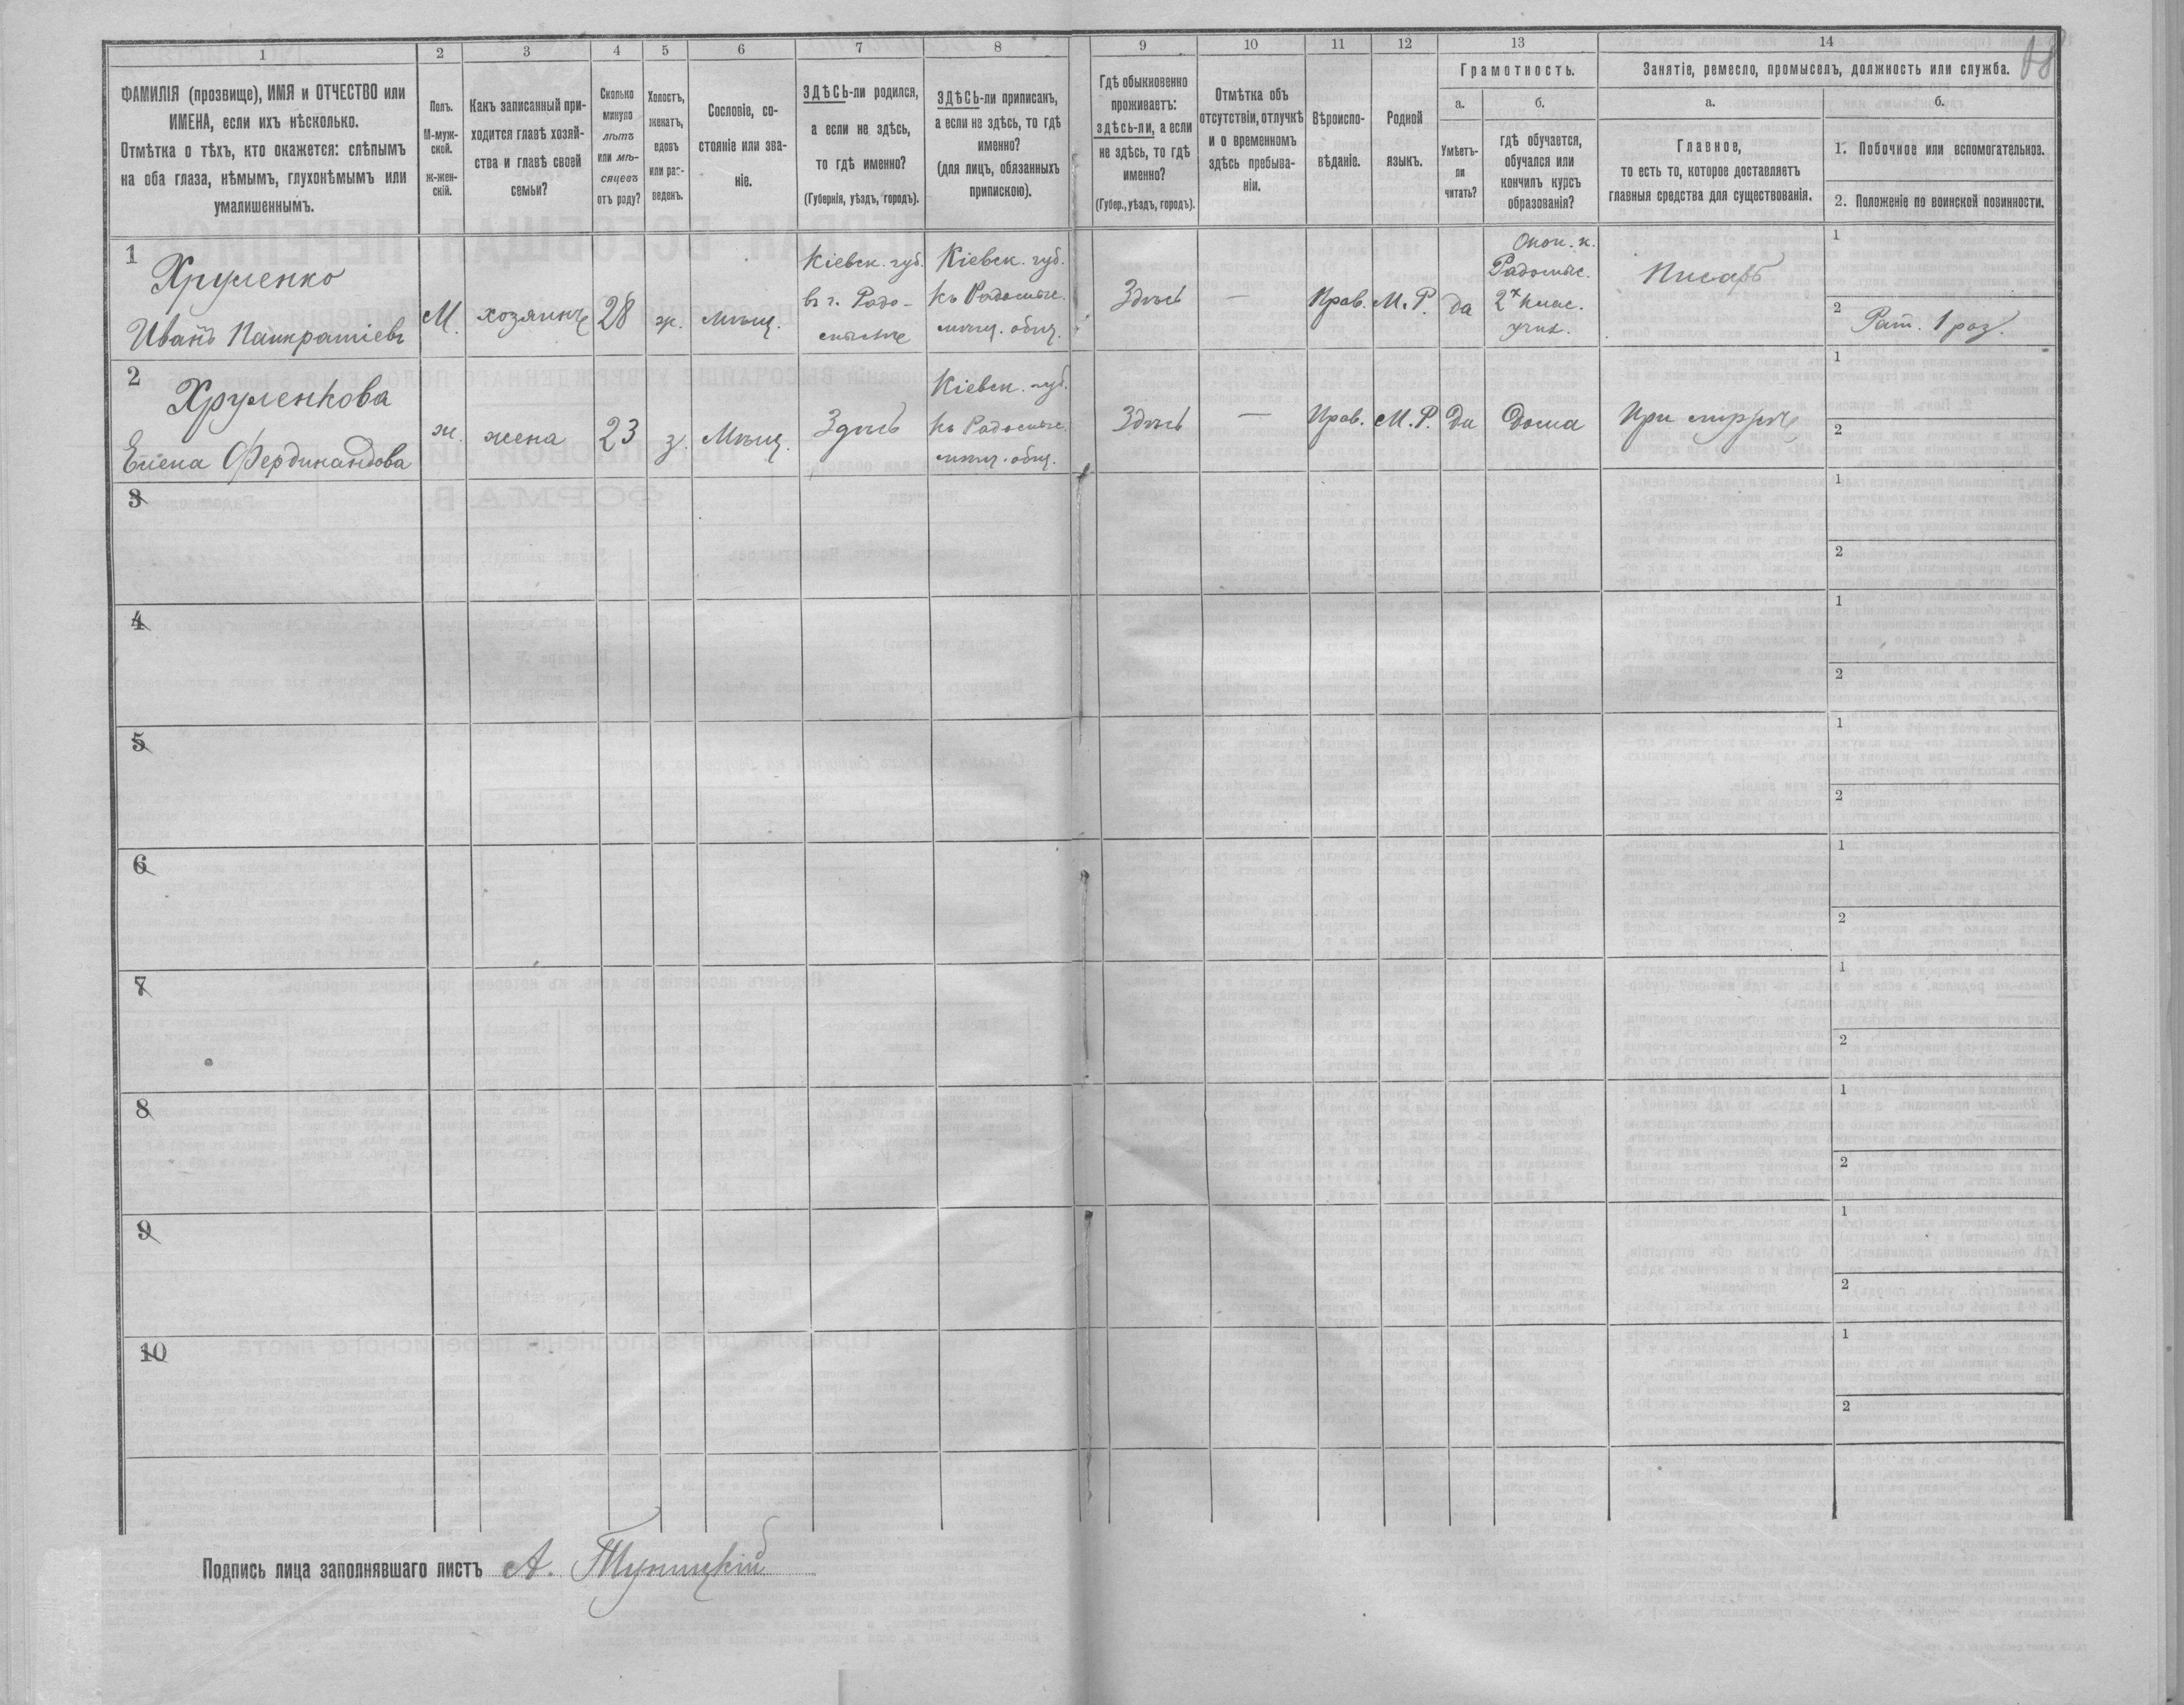 1
2
3
4
5
6
7
8
9
10
11
12
13
14
ФАМИЛІЯ (прозвище), ИМЯ и ОТЧЕСТВО или
ИМЕНА, если ихъ нѣсколько.
Отмѣтка о тѣхъ, кто окажется: слѣпымъ
на оба глаза, нѣмымъ, глухонѣмымъ или
умалишеннымъ.
Полъ.
М-муж-
ской.
ж-жен-
скій.
Какъ записанный при-
ходится главѣ хозяй-
ства и главѣ своей
семьи?
Сколько
минуло
лѣтъ
или мѣ-
сяцевъ
отъ роду?
Холостъ,
женатъ,
вдовъ
или раз-
веденъ.
Сословіе, со-
стояніе или зва-
ніе.
ЗДѢСЬ-ли родился,
а если не здѣсь,
то гдѣ именно?
(Губернія, уѣздъ, городъ).
ЗДѢСЬ-ли приписанъ,
а если не здѣсь, то гдѣ
именно?
(для лицъ, обязанныхъ
припискою).
Гдѣ обыкновенно
проживаетъ:
здѣсь-ли, а если
не здѣсь, то гдѣ
именно?
(Губер., уѣздъ, городъ).
Отмѣтка объ
отсутствіи, отлучкѣ
и о временномъ
здѣсь пребыва-
ніи.
Вѣроиспо-
вѣданіе.
Родной
языкъ.
Грамотность.
а.
Умѣетъ-
ли
читать?
б.
гдѣ обучается,
обучался или
кончилъ курсъ
образованія?
Занятіе, ремесло, промыселъ, должность или служба.
а.
Главное,
то есть то, которое доставляетъ
главныя средства для существованія.
б.
1. Побочное или вспомогательное.
2. Положеніе по воинской повинности.
1
Хруленко
Иванъ Панкратіевъ
М.
хозяинъ
28
ж.
мѣщ.
Кіевск. губ.
въ г. Радо-
мыслѣ
Кіевск. губ.
къ Радомыс.
мѣщ. общ.
Здѣсь
—
Прав.
М. Р.
да
Окон. к.
Радомыс.
2х клас.
учил.
Писарь
1
2
Рат. 1 раз.
2
Хруленкова
Елена Фердинандова
ж.
жена
23
з.
Мѣщ.
Здѣсь
Кіевск. губ.
къ Радомыс.
мѣщ. общ.
Здѣсь
—
Прав.
М. Р.
Да
Дома
При мужѣ
1
2
3
1
2
4
1
2
5
1
2
6
1
2
7
1
2
8
1
2
9
1
2
10
1
2
Подпись лица заполнявшаго листъ А. Туницкій